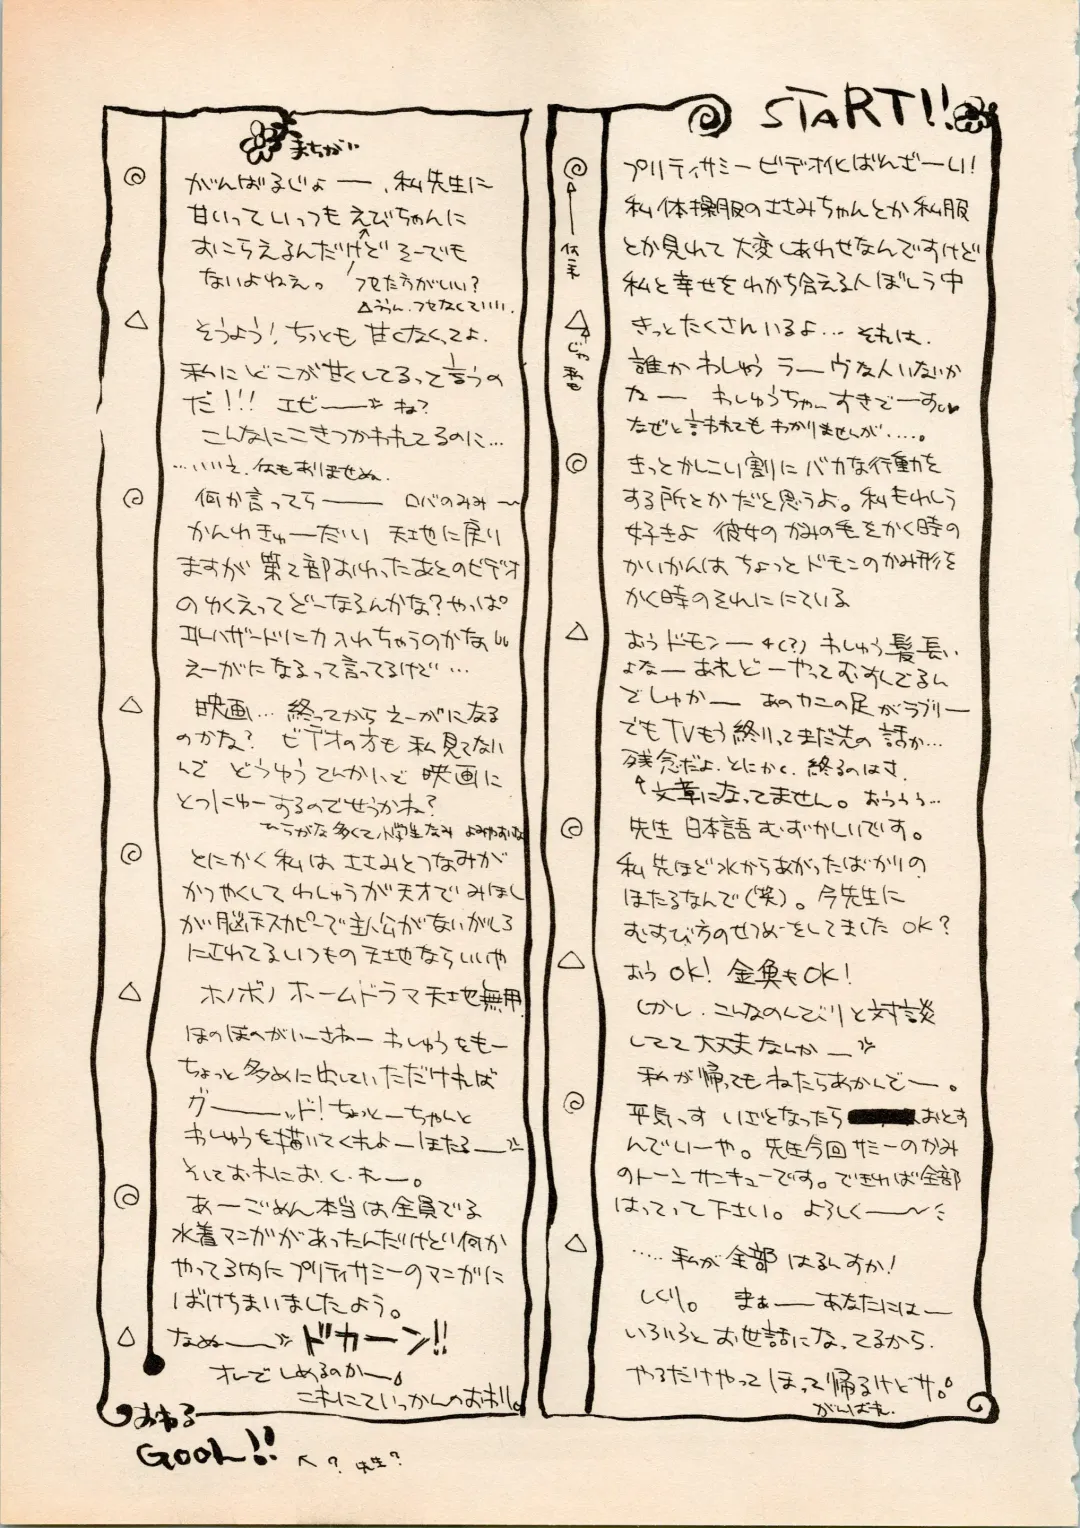 START!!
プリティサミー ビデオ化ばんざーい!
私 体操服のささみちゃんとか 私服
とか見れて 大変しあわせなんですけど
私と幸せをわかち合える人 ぼしう中
きっとたくさんいるよ… それは、
誰か わしゅう ラーヴな人いないか
なー わしゅうちゃん すきでーす
なぜと言われても わかりませんが……。
きっとかしこい割に バカな行動を
する所とかだと思うよ。私もわしう
好きよ 彼女の かみの毛をかく時の
かいかんは ちょっと ドモンのかみ形を
かく時のそれに にている
おう ドモンー (?) わしゅう 髪長い
よなー あれどーやってむすんでるん
でしゅかー あのカニの足がラブリー
でもTVもう終りってまだ先の話か…
残念だよ、とにかく、終るのはさ、
↑文章になってません。おううぅ…
先生 日本語 むずかしいです。
私 先ほど 水からあがったばかりの
ほたるなんで(笑)。今先生に
むすび方のせつめーをしてました OK?
おう OK! 金魚もOK!
しかし、こんなのんびりと対談
してて大丈夫なんかー
私が帰っても ねたらあかんでー。
平気っす いざとなったら おとす
んでいーや。先生今回 サミーのかみ
のトーン サンキューです。できれば全部
はってって下さい。 よろしくー〜
……私が全部 はるんすか!
しくり。 まぁー あなたにはー
いろいろと お世話になってるから、
やるだけやって ほって帰るけどサ。
がんばれ、
何主
じゃ私も
まちがい
がんばるじょー、私先生に
甘いって いっつも えびちゃんに
おこられるんだけど そーでも
ないよねぇ。 フセた方がいい?
△ううん、フセなくていい、
そうよう! ちっとも 甘くなくってよ、
私に どこが甘くしてるって言うの
だ!!! エビー ね?
こんなにこきつかわれてるのに…
……いいえ、何もありませぬ、
何か言ってらー ロバのみみ〜
かんわきゅーだい 天地に戻り
ますが 第2部おわったあとのビデオ
のゆくえってどーなるんかな? やっぱ
エルハザードに力入れちゃうのかなぁ
えーがになるって言ってるけど…
映画… 終ってから えーがになる
のかな? ビデオの方も 私見てない
んで どうゆうてんかいで 映画に
とつにゅーするのでせうかね?
ひらがな多くて小学生なみ よみやすいな
とにかく私は、ささみとつなみが
かつやくして わしゅうが天才で みほし
が 脳天スカピーで 主人公がないがしろ
にされてるいつもの 天地ならいいや
ホノボノ ホームドラマ 天地無用
ほのぼのがいーさねー わしゅうをもー
ちょっと多めに出していただければ
グーッド! ちょっとーちゃんと
わしゅうを描いてくれよー ほたるー
そしてお木にお・く・れー。
あーごめん本当は全員でる
水着マンガがあったんだけどい何か
やってる内に プリティサミーのマンガに
ばけちまいましたよう。
なぬー ドカーン!!
オレでしめるのかー
これにていっかんのおわり。
おわる
GOOL!!
↖? 先生?